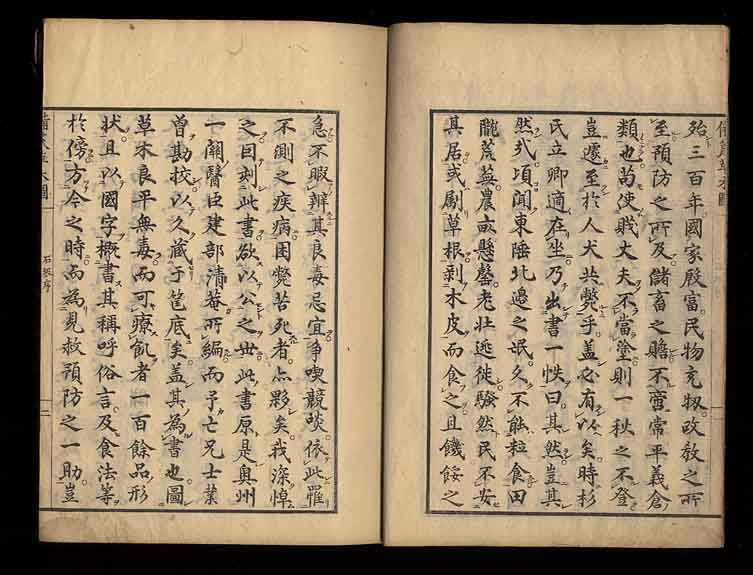 殆三百年國家殷富民物充牣政教之所
至預防之所及儲畜之贍不啻常平義倉
類也苟使賎丈夫不當塗則一秋之不登
豈遽至於人犬共斃乎蓋必有以矣時杉
民立卿適在坐乃出書一帙曰其然豈其
然弐頃聞東陲北邊之氓久不能粒食田
朧荒蕪農畝懸罄老壮逃徙騷然民不安
其居或劚草根剥木皮而食之且饑餒之
急不暇辨其良毒忌宜争喫競啖依此罹
不測之疾病困斃苦死者亦夥矣我深悼
之因刻此書欲以公之世此書原是奥州
一關醫臣建部清菴所編而予亡兄士業
曽勘挍以久藏于笸底矣蓋其為書也圖
草木良平無毒而可療飢者一百餘品形
状且以國字概書其稱呼俗言及食法等
於傍方今之時而為見救預防之一助豈
備荒草木圖 序 二